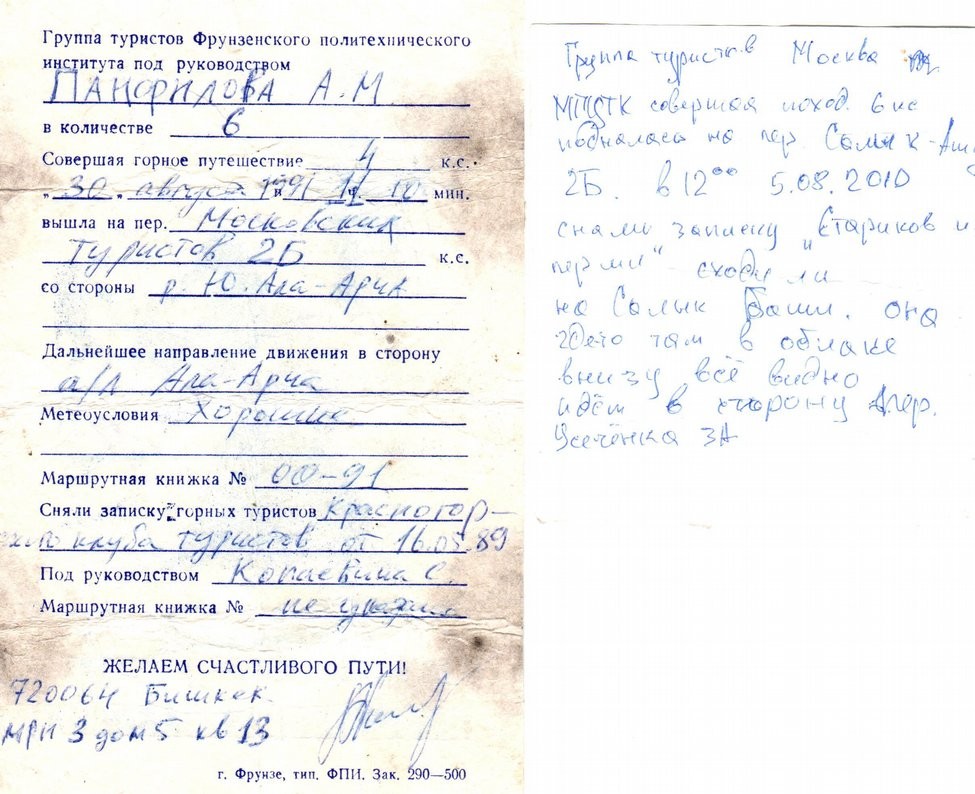 Группа туристов Фрунзенского политехнического
института под руководством
ПАНФИЛОВА А.М.
в количестве 6
Совершая горное путешествие 4 к.с.
„30„ августа 1991 ч. 10 мин.
вышла на пер. Московских
Туристов 2Б к.с.
со стороны р. Ю. Ала-Арча
Дальнейшее направление движения в сторону
а/л Ала-Арча
Метеоусловия Хорошие
Маршрутная книжка № 00-91
Сняли записку горных туристов Красногор-
клуба туристов от 16.05.89
Под руководством С.
Маршрутная книжка № не
ЖЕЛАЕМ СЧАСТЛИВОГО ПУТИ!
720064 Бишкек
мрн 3 дом 5 кв 13
г. Фрунзе, тип. ФПИ. Зак. 290—500
Группа туристов Москва
совершая поход 6 кс
поднялась на пер. Салык-
2Б. в 12⁰⁰ 5.08.2010
сняли записку „Стариков и
перми" сходили
на Салык Баши. она
гдето там в облаке
внизу всё видно
идём в сторону пер.
Усечёнка 3А